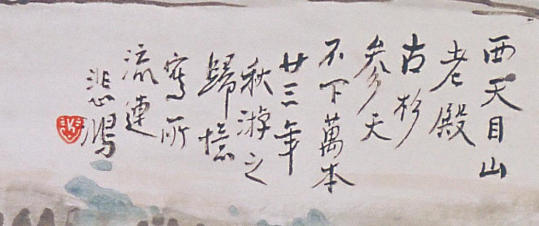 西天目山
老殿
古杉
參天
不下萬本
廿三年
秋游之
歸憶
寫所
流連
悲鴻